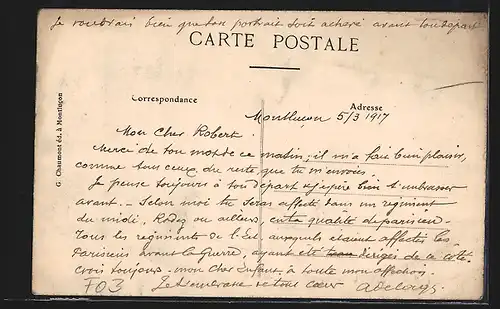 Je voudrais bien que ton portrait soit achevé avant ton départ
CARTE POSTALE
Correspondance
Adresse
G. Chaumont éd. à Montluçon
Montluçon 5/3 1917
Mon cher Robert
Merci de ton mot de ce matin; il m'a fait bien plaisir,
comme tous ceux du reste que tu m'envoies.
Je pense toujours à ton départ et j'espère bien t'embrasser
avant. - Selon moi tu seras affecté dans un régiment
du midi, Rodez ou ailleurs, en ta qualité de parisien.
Tous les régiments de l'Est auxquels étaient affectés les
Parisiens avant la guerre, ayant été dirigés de ce côté.
Crois toujours mon cher enfant, à toute mon affection.
Je t'embrasse de tout cœur
F03